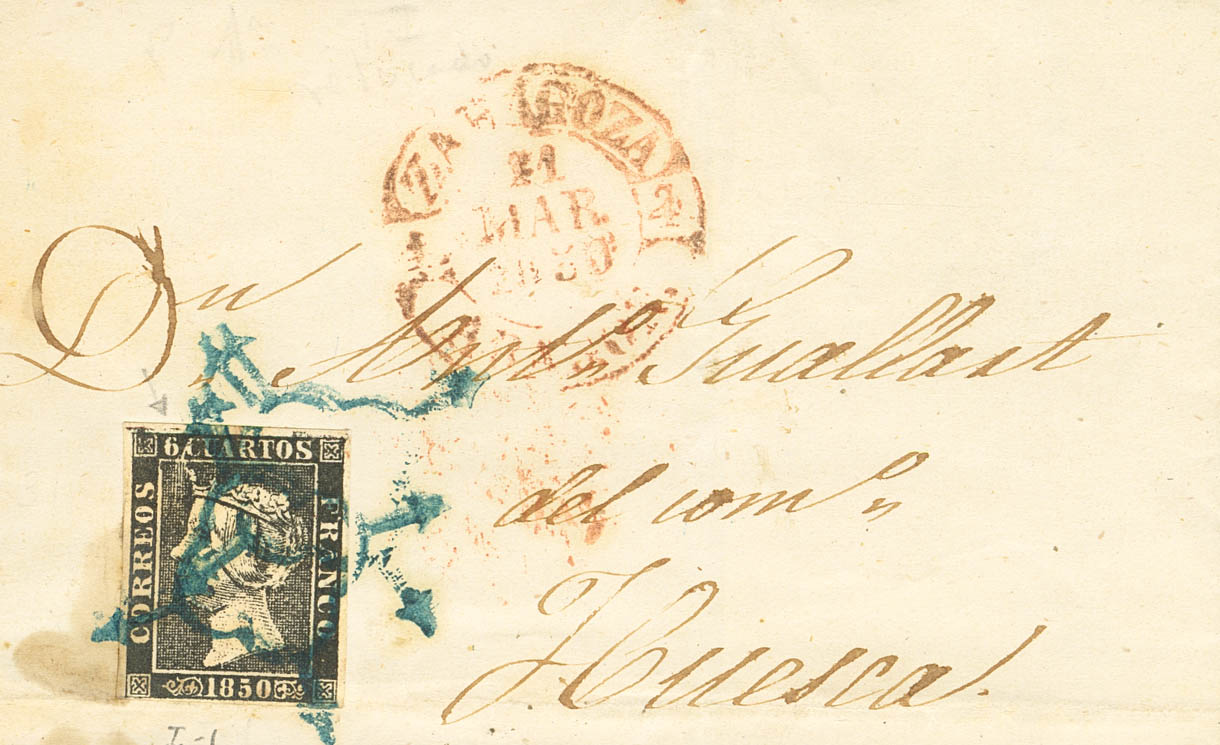 ZARAGOZA
MAR
Dn Antº Guallart
del comº
Huesca.
6 CUARTOS
CORREOS
FRANCO
1850